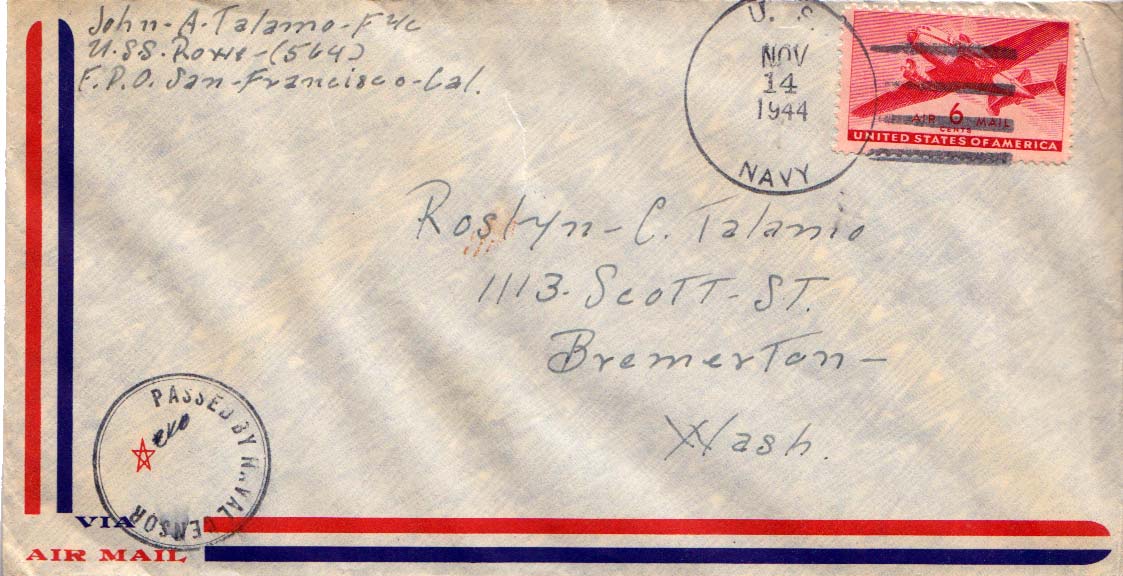 John-A-Talamo-F 2/c
U.S.S. Rowe-(564)
F.P.O. San-Francisco-Cal.
U. S.
NOV
14
1944
NAVY
AIR 6 MAIL
CENTS
UNITED STATES OF AMERICA
Roslyn-C. Talamo
1113-Scott-St.
Bremerton-
Wash.
PASSED BY NAVAL CENSOR
VIA
AIR MAIL